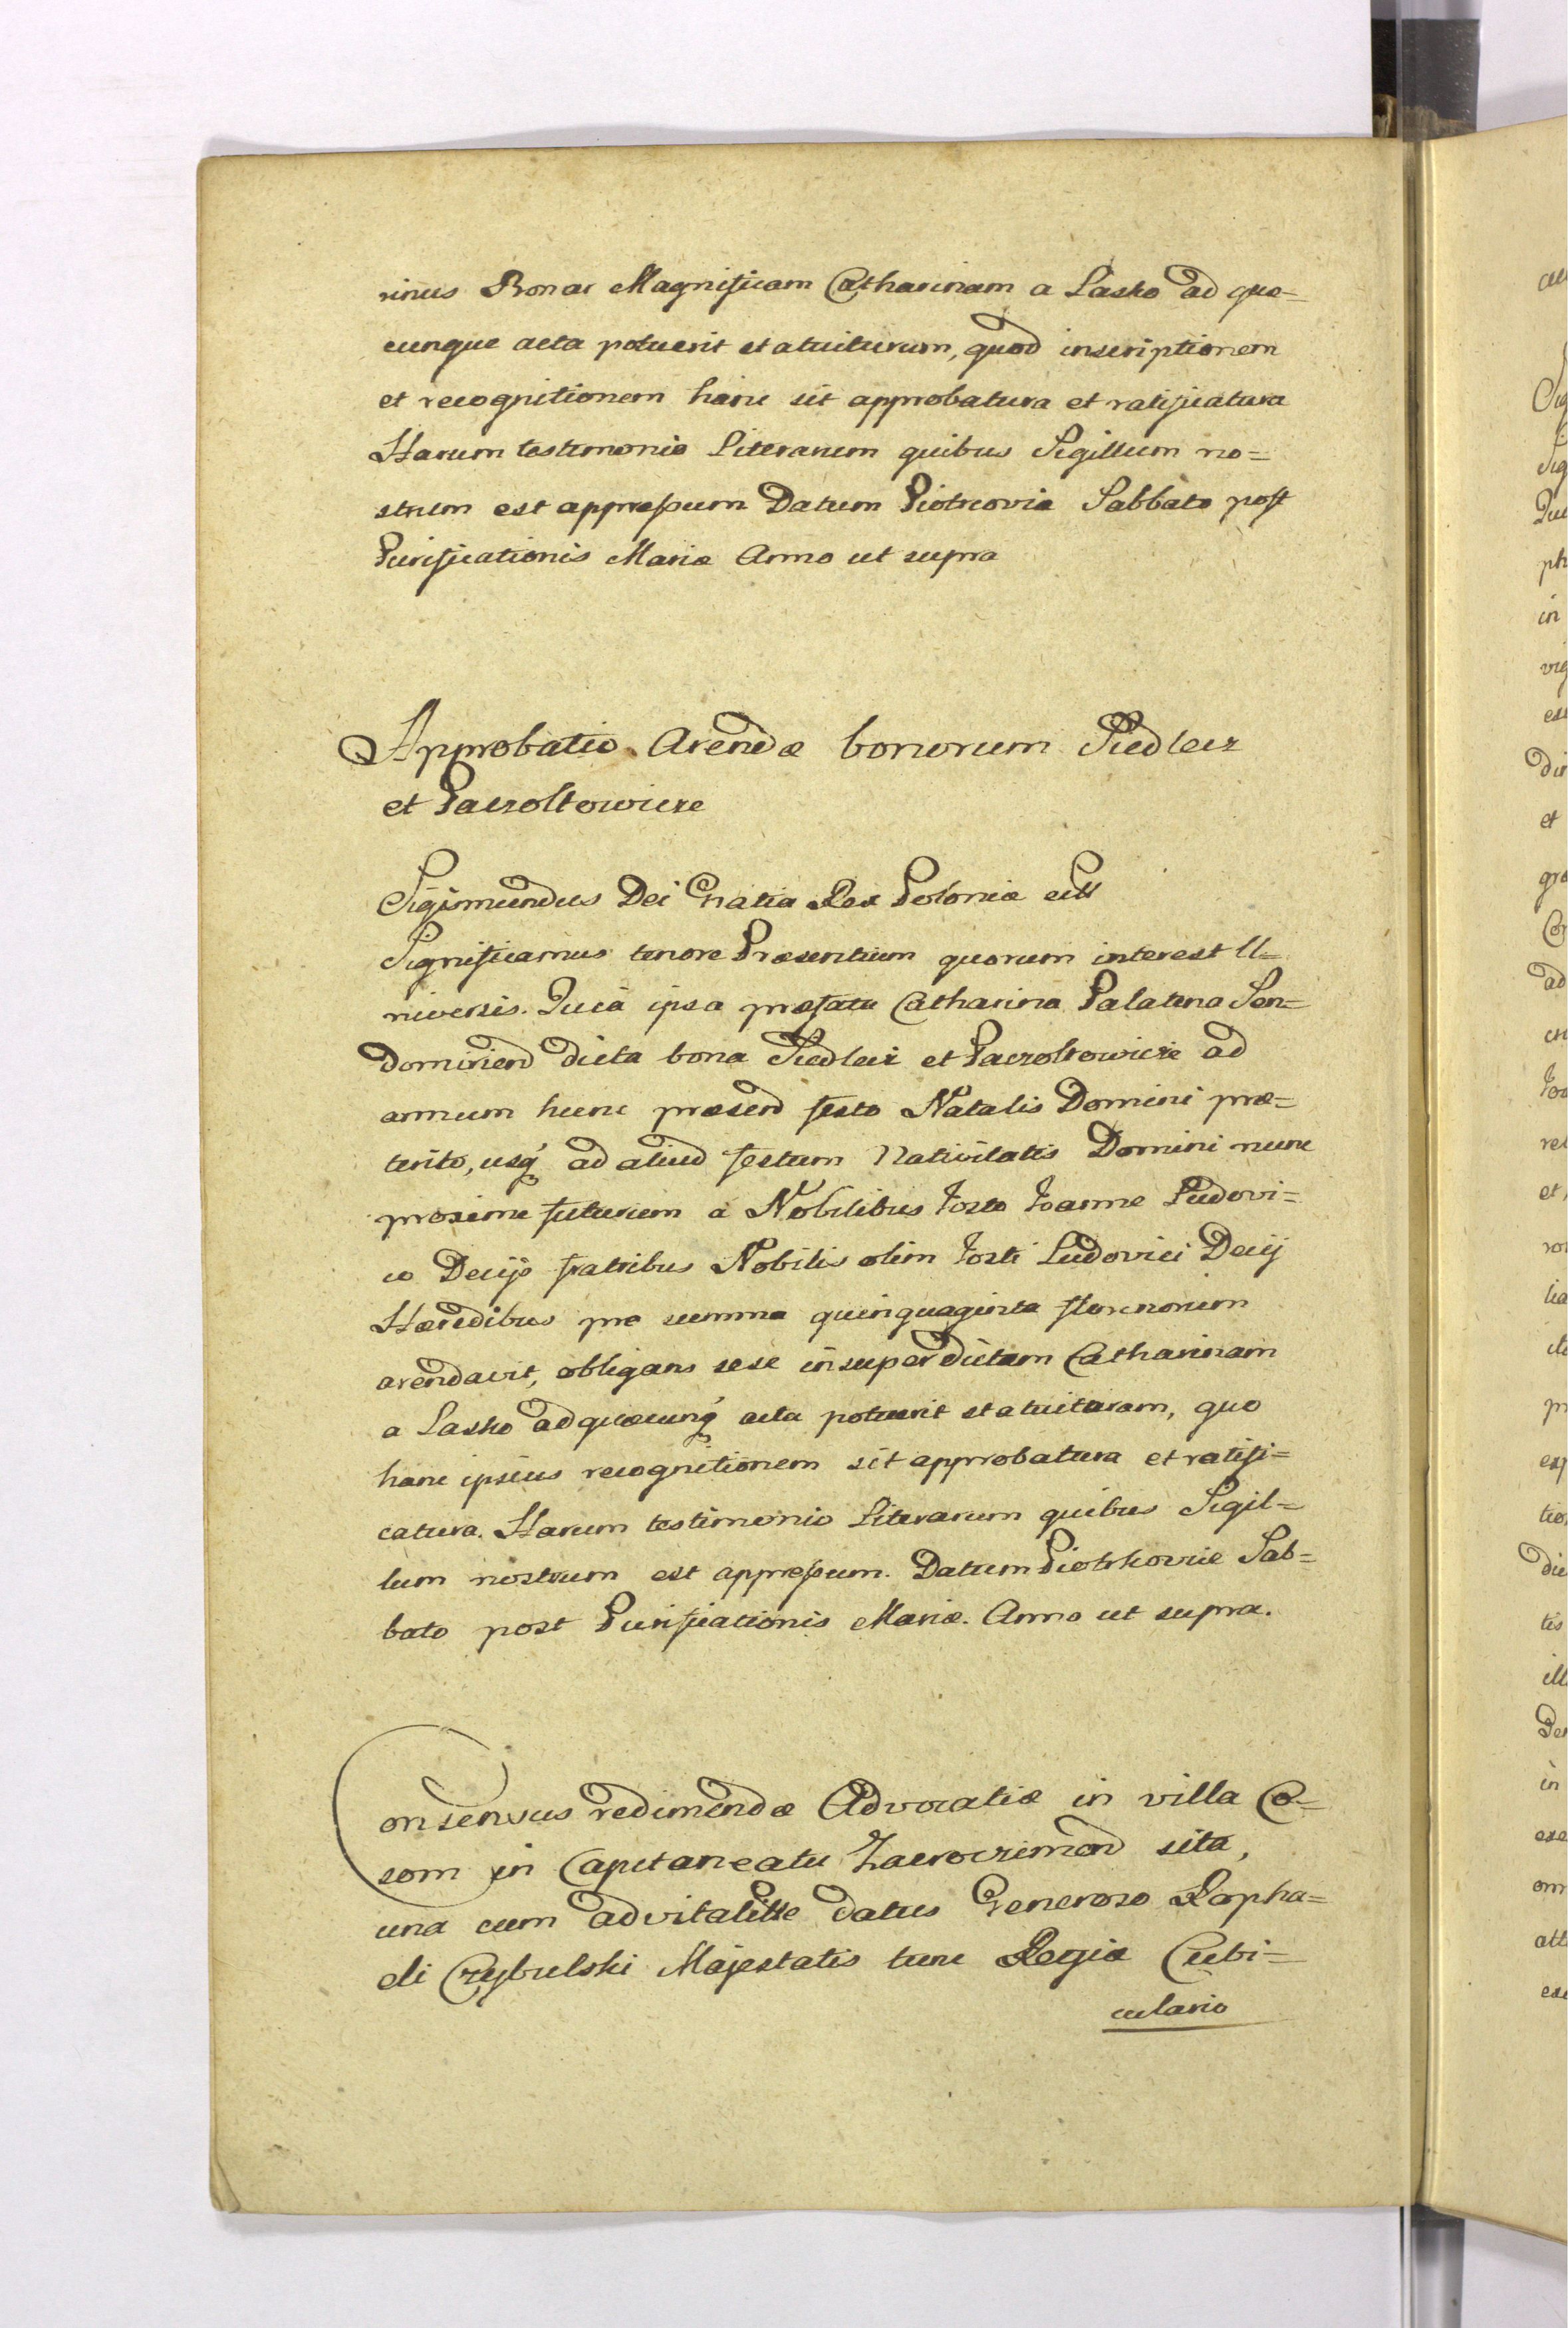 rinus Bonar Magnificam Catharinam a Lasko ad que=
cunque acta potuerit statuiturum, quod inscriptionem
et recognitionem hanc sit approbatura et ratificatura
Harum testimonio Literarum quibus Sigillum no=
strum est appressum Datum Piotrcovia Sabbato post
Purificationis Mariæ Anno ut supra
Approbatio Arendæ bonorum Siedlecz
et Paczoltowicze
Sigismundus Dei Gratia Rex Poloniæ
Significamus tenore Præsentium quorum interest U=
niversis. Quia ipsa præfata Catharina Palatina San=
domirien dicta bona Siedlecz et Paczoltowicze ad
annum hunc præsend festo Natalis Domini præ=
terito, usq́ ad aliud festum Nativitatis Domini nunc
proxime futurum a Nobilibus Josto Joanne Ludovi=
co Decijs fratribus Nobilis olim Josti Ludovici Decij
Hæredibus pro summa quinquaginta florenorum
arendavit, obligans sese insuper dictam Catharinam
a Lasko ad quæcunq́ acta potuerit statuituram, quo
hanc ipsius recognitionem sit approbatura et ratifi=
catura. Harum testimonio Literarum quibus Sigil=
lum nostrum est appressum. Datum Piotrkoviæ Sab=
bato post Purificationis Mariæ. Anno ut supra.
Consensus redimendæ Advocatiæ in villa Co=
som in Capitaneatu Zacroczimend sita,
una cum advitalitte datus Generoso Rapha=
eli Czybulski Majestatis tunc Regiæ Cubi=
culario